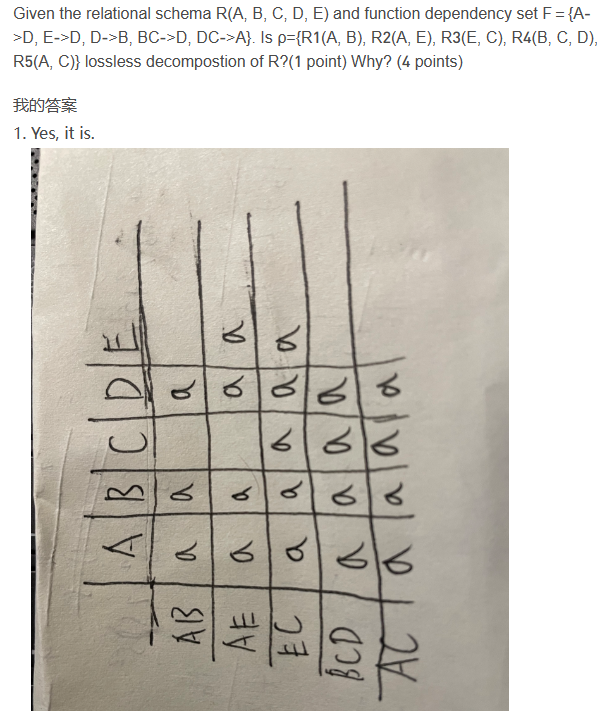 Given the relational schema R(A, B, C, D, E) and function dependency set F = {A-
>D, E->D, D->B, BC->D, DC->A}. Is ρ={R1(A, B), R2(A, E), R3(E, C), R4(B, C, D),
R5(A, C)} lossless decompostion of R?(1 point) Why? (4 points)
我的答案
1. Yes, it is.
A B C D E
AB a a a
AE a a a a
EC a a a a a
BCD a a a a
AC a a a a